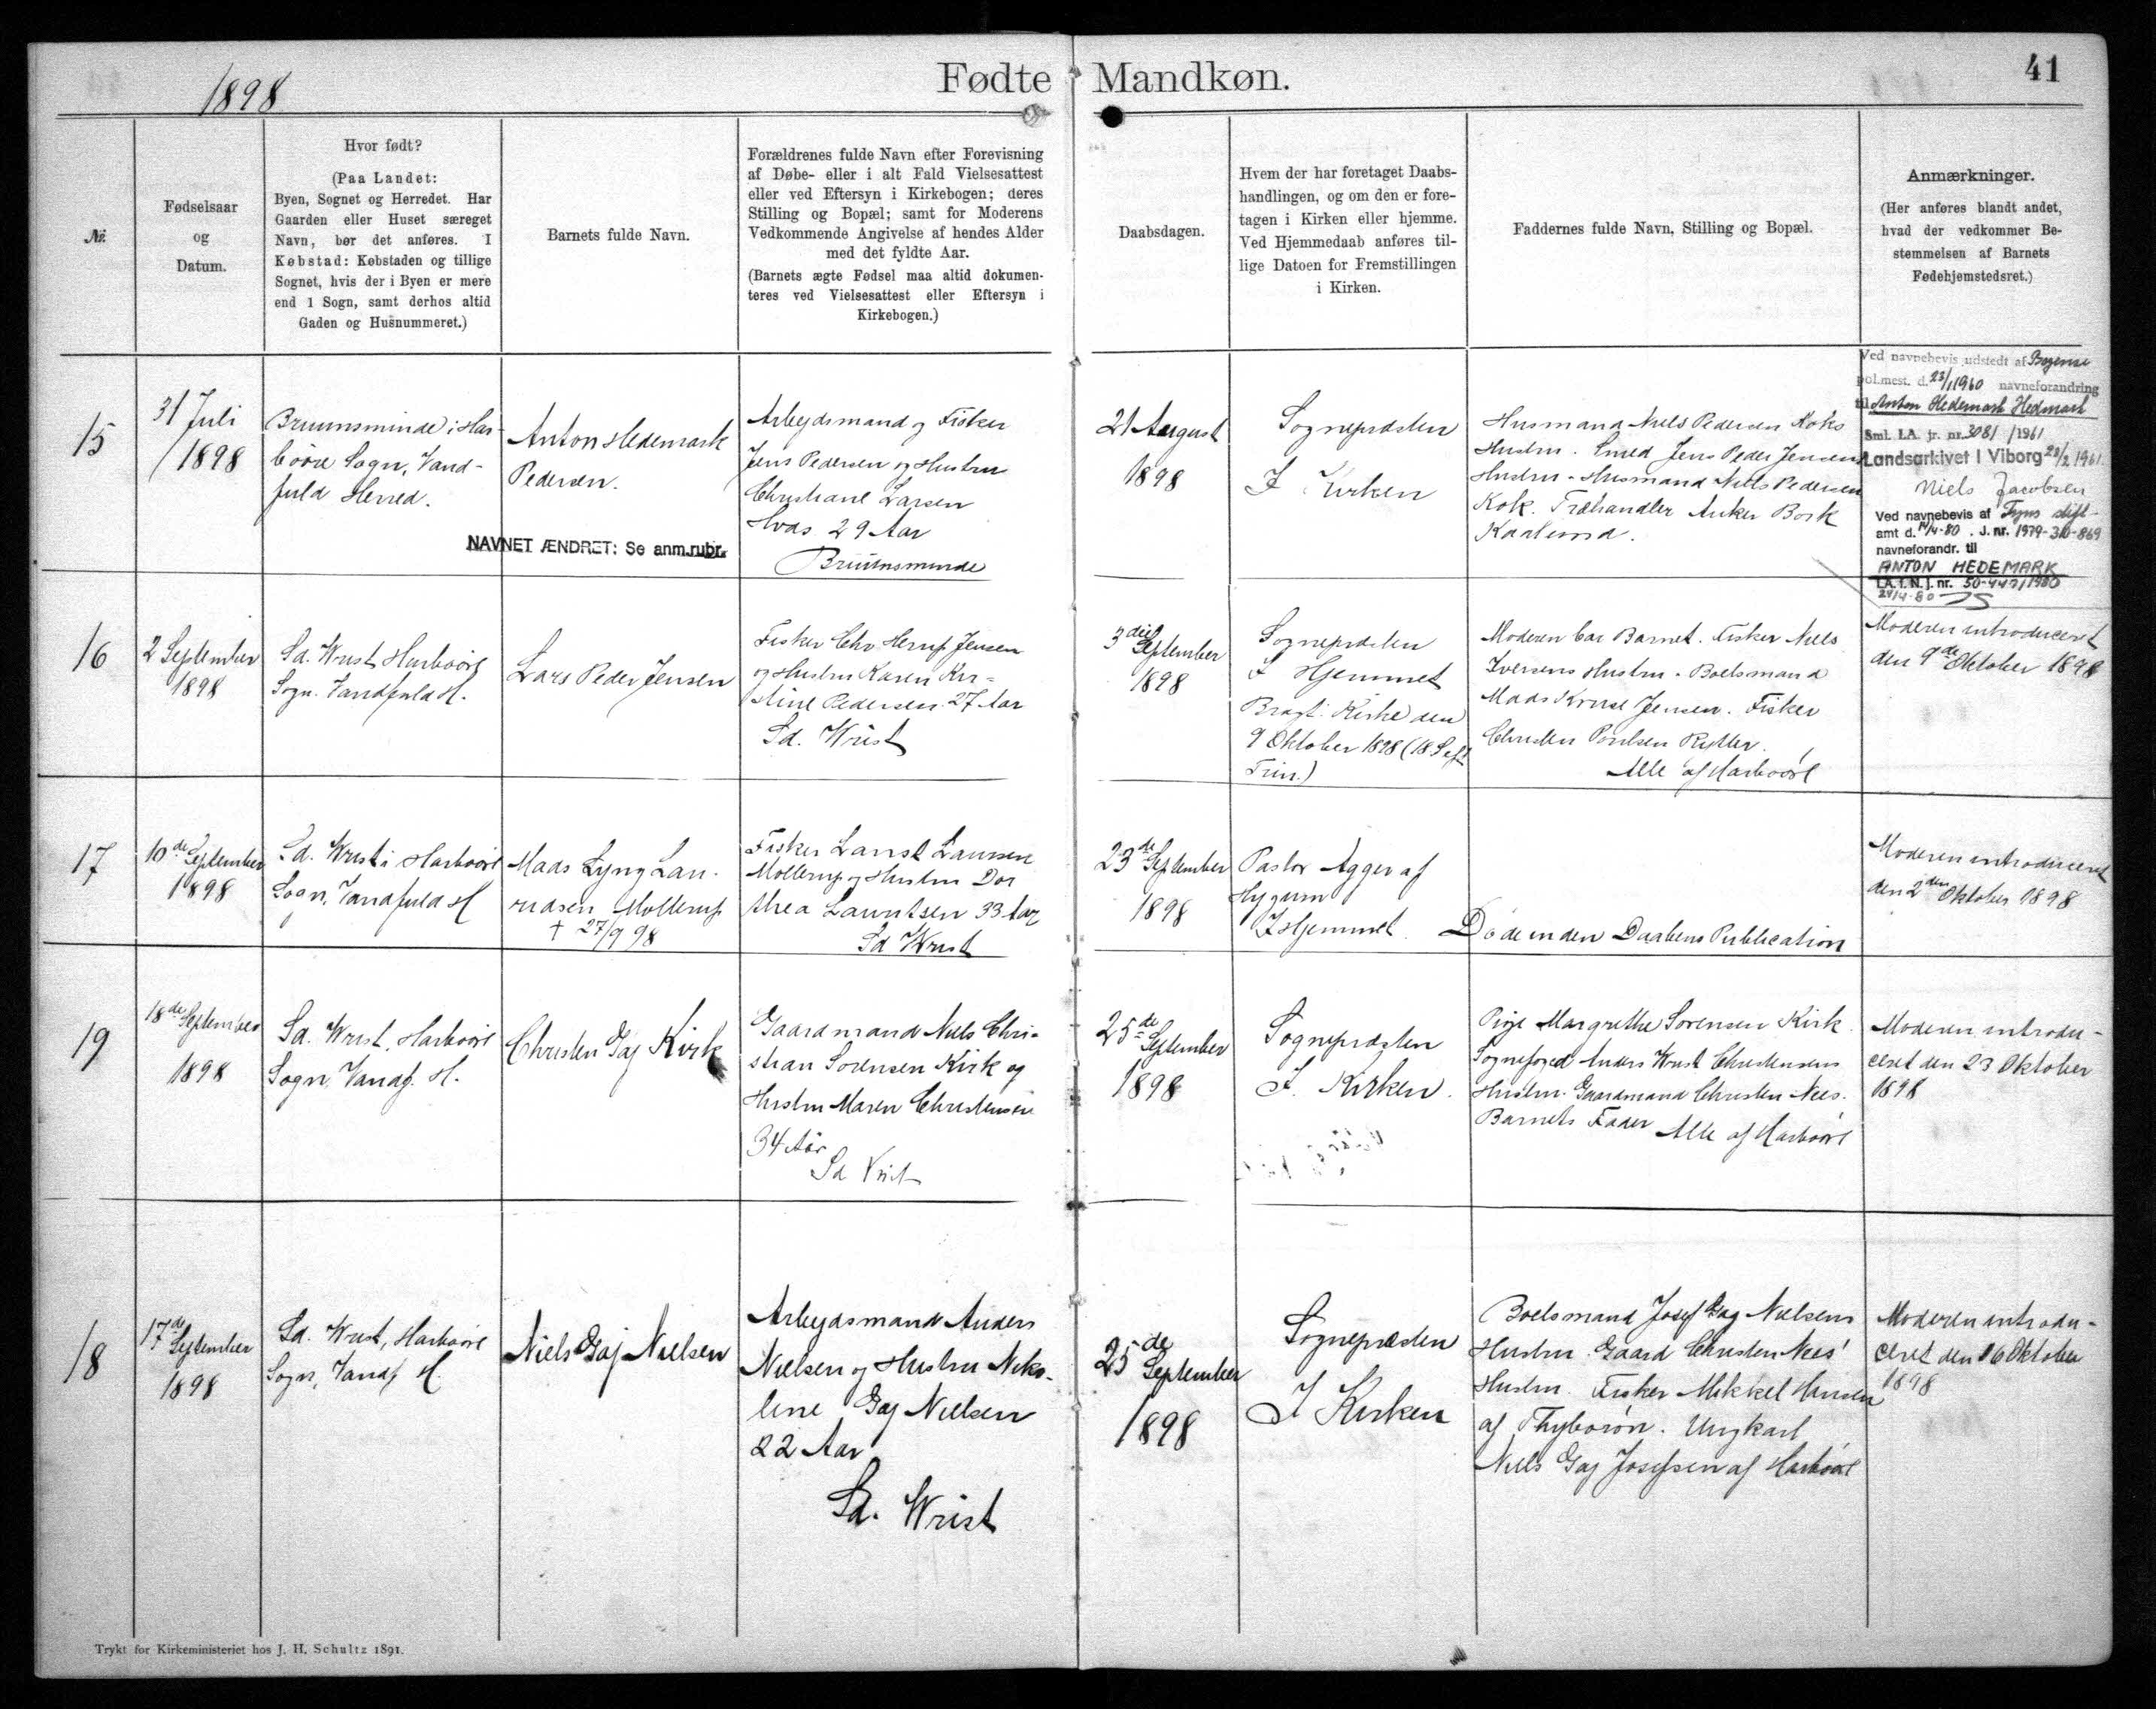 1898
Fødte Mandkøn.
41
№.
Fødselsaar
og
Datum.
Hvor født?
(Paa Landet:
Byen, Sognet og Herredet. Har
Gaarden eller Huset særeget
Navn, bør det anføres. I
Købstad: Købstaden og tillige
Sognet, hvis der i Byen er mere
end 1 Sogn, samt derhos altid
Gaden og Husnummeret.)
Barnets fulde Navn.
Forældrenes fulde Navn efter Forevisning
af Døbe- eller i alt Fald Vielsesattest
eller ved Eftersyn i Kirkebogen; deres
Stilling og Bopæl; samt for Moderens
Vedkommende Angivelse af hendes Alder
med det fyldte Aar.
(Barnets ægte Fødsel maa altid dokumen-
teres ved Vielsesattest eller Eftersyn i
Kirkebogen.)
Daabsdagen.
Hvem der har foretaget Daabs-
handlingen, og om den er fore-
tagen i Kirken eller hjemme.
Ved Hjemmedaab anføres til-
lige Datoen for Fremstillingen
i Kirken.
Faddernes fulde Navn, Stilling og Bopæl.
Anmærkninger.
(Her anføres blandt andet,
hvad der vedkommer Be-
stemmelsen af Barnets
Fødehjemstedsret.)
15
31 Juli
1898
Bruunsminde i Har-
boøre Sogn, Vand-
fuld Herred.
Anton Hedemark
Pedersen.
NAVNET ÆNDRET: Se anm.rubr.
Arbejdsmand og Fisker
Jens Pedersen og Hustru
Christiane Larsen
Hvas 29 Aar
Bruunsminde
21 August
1898
Sognepræsten
I Kirken
Husmand Niels Pedersen Koks
Hustru. Smed Jens Peder Jensens
Hustru. Husmand Niels Pedersen
Kok. Træhandler Anker Bork
Ved navnebevis udstedt af Bogense
pol.mest. d. 23/1 1960 navneforandring
til Anton Hedemark Hedmark
Sml. LA. jr. nr. 3081/1961
Landsarkivet i Viborg 28/2 1961.
Niels Jacobsen
Ved navnebevis af Fyns stift-
amt d. 14/4-80. J. nr. 1979-310-869
navneforandr. til
ANTON HEDEMARK
LA. f. N. j. nr. 50-447/1980
24/4-80
16
2 September
1898
Sd. Wrist Harboøre
Sogn. Vandfuld H.
Lars Peder Jensen
Fisker Chr Herup Jensen
og Hustru Karen Kir-
stine Pedersen 27 Aar
Sd. Wrist
3die September
1898
Sognepræsten
I Hjemmet
Bragt i Kirke den
9 Oktober 1898 (18 S eft
Trin.)
Moderen bar Barnet. Fisker Niels
Iversens Hustru. Boelsmand
Mads Kruse Jensen. Fisker
Christen Poulsen Rytter.
Alle af Harboøre
Moderen introduceret
den 9de Oktober 1898
17
10de September
1898
Sd. Wrist i Harboøre
Sogn, Vandfuld H
Maas Lyng Lau-
ridsen Møllerup
† 27/9 98
Fisker Laurst Laursen
Møllerup og Hustru Dor
thea Lauritsen 33 Aar
Sd Wrist
23de September
1898
Pastor Agger af
Hygum
I Hjemmet.
Døde inden Daabens Publication
Moderen introduceret
den 2den Oktober 1898
19
18de September
1898
Sd. Wrist, Harboøre
Sogn, Vandf. H.
Christen Gaj Kirk
Gaardmand Niels Chri-
stian Sørensen Kirk og
Hustru Maren Christensen
34 Aar
Sd Wrist
25de September
1898
Sognepræsten
I Kirken.
Pige Margrethe Sørensen Kirk.
Sognefoged Anders Wrist Christensens
Hustru. Gaardmand Christen Nees.
Barnets Fader Alle af Harboøre
Moderen introdu-
ceret den 23 Oktober
1898
18
17de September
1898
Sd. Wrist, Harboøre
Sogn, Vandf H.
Niels Gaj Nielsen
Arbejdsmand Anders
Nielsen og Hustru Niko-
line Gaj Nielsen
22 Aar
Sd. Wrist
25de September
1898
Sognepræsten
I Kirken
Boelsmand Josef Gaj Nielsens
Hustru. Gaard Christen Nees'
Hustru. Fisker Mikkel Hansen
af Thyborøn. Ungkarl
Niels Gaj Josefsen af Harboøre
Moderen introdu-
ceret den 16 Oktober
1898
Trykt for Kirkeministeriet hos J. H. Schultz 1891.